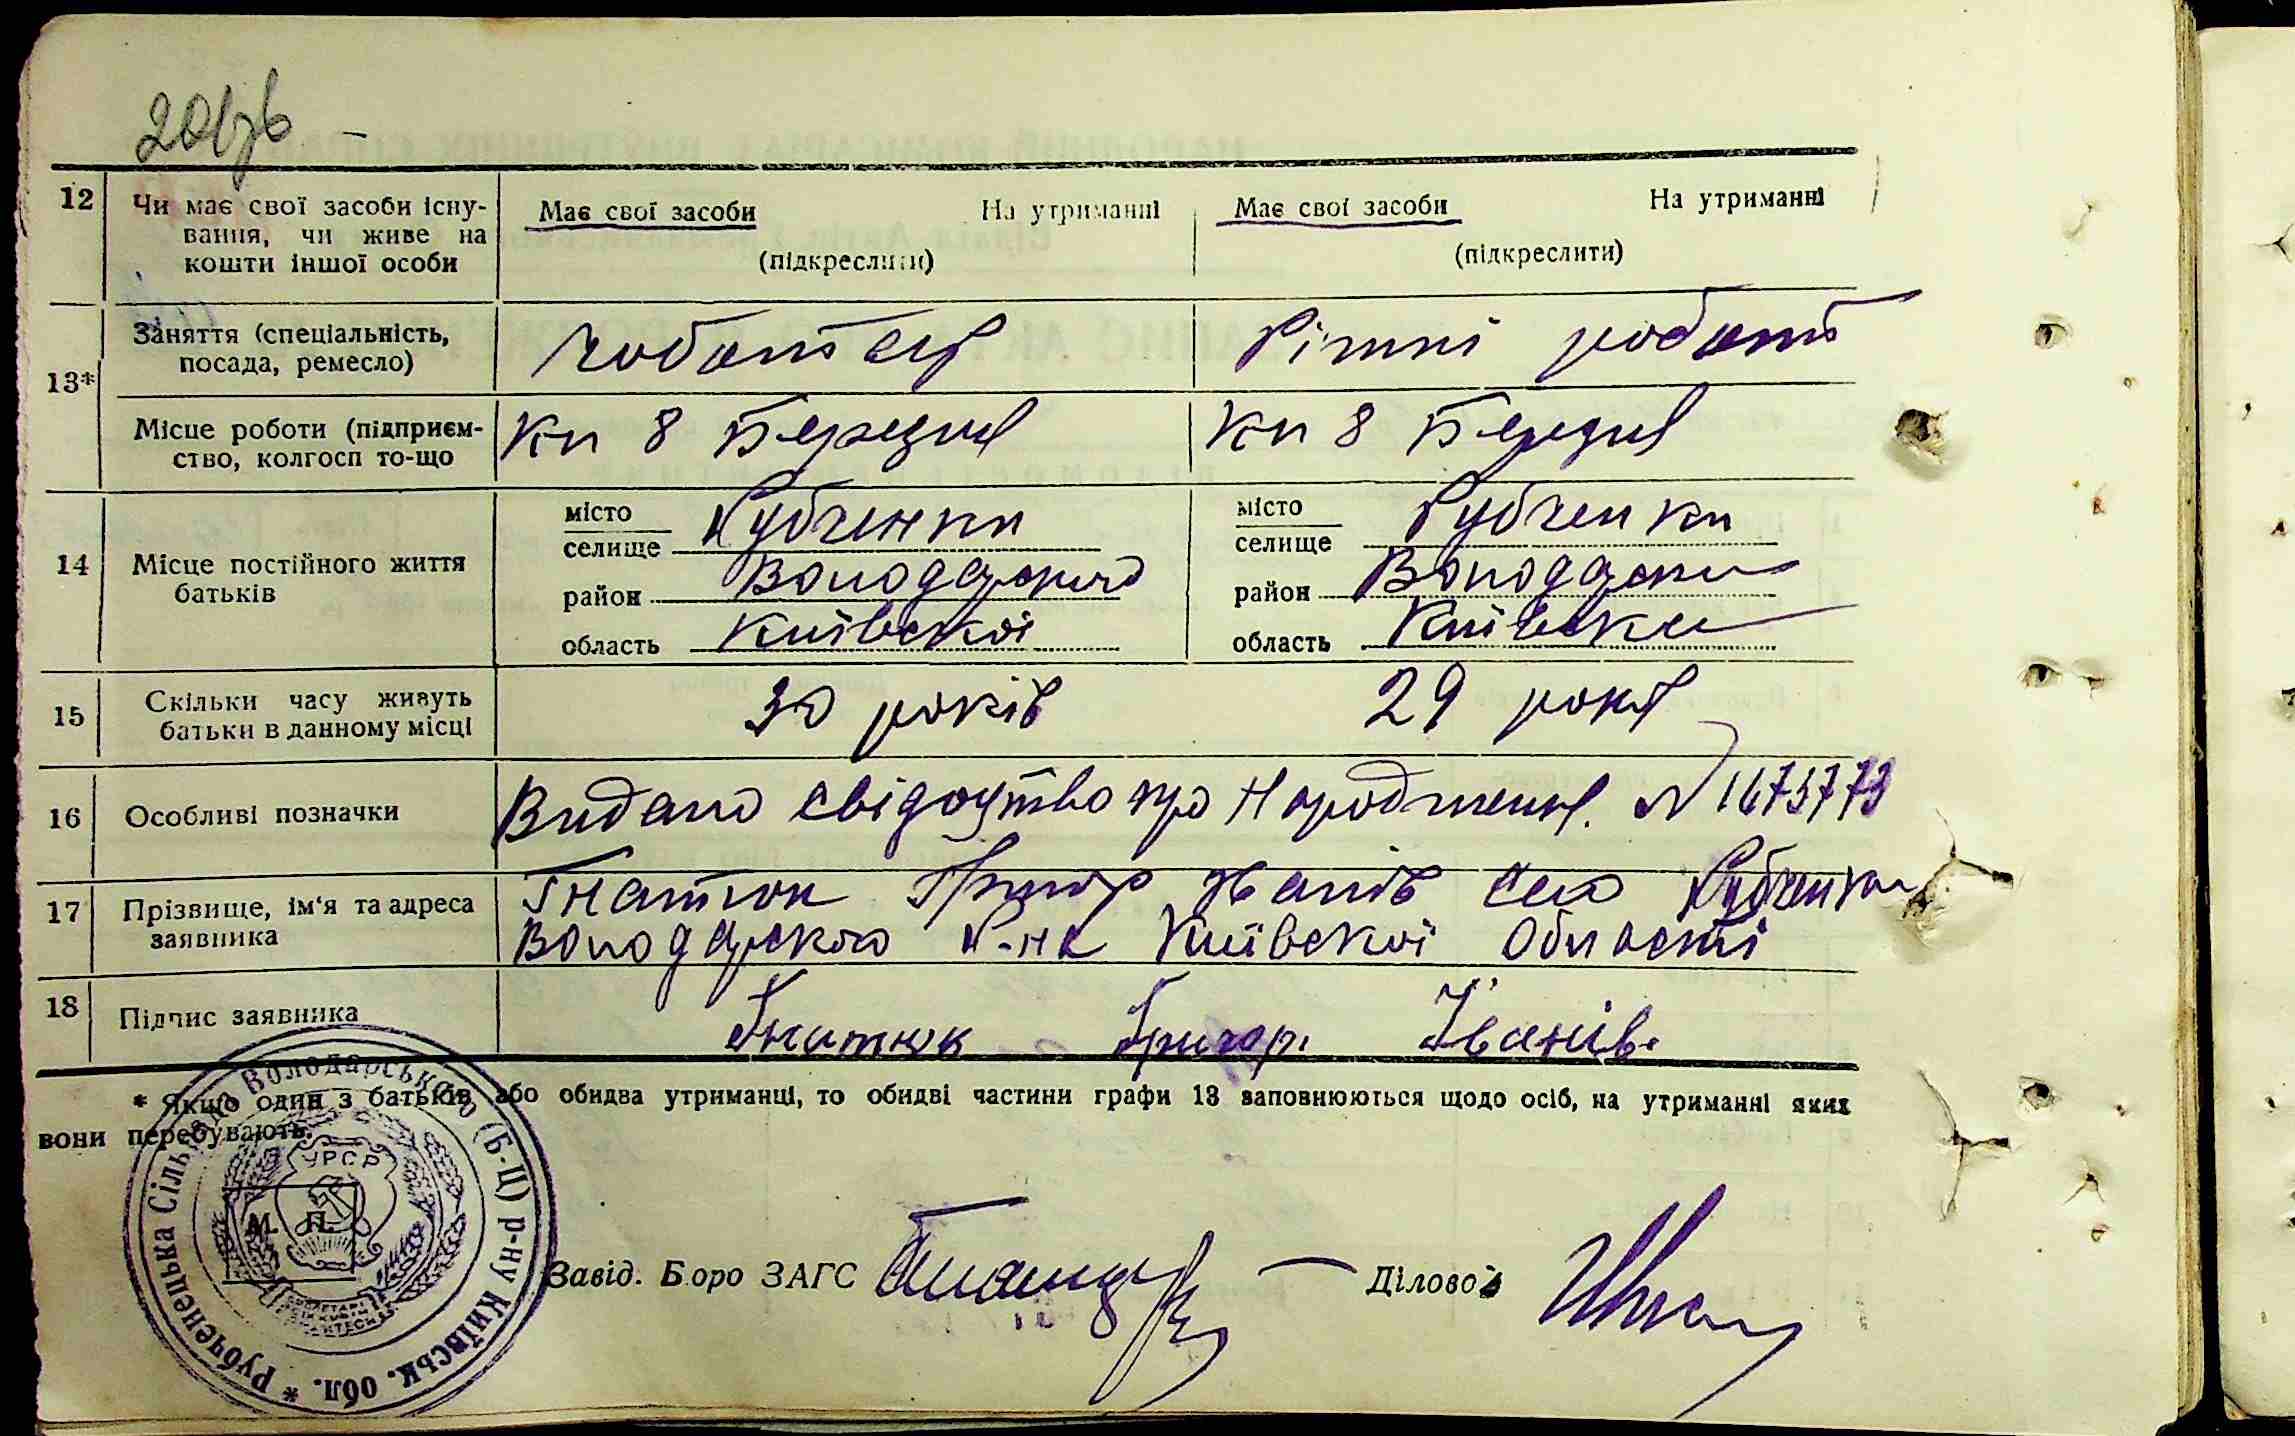 12 Чи має свої засоби існу-
вання, чи живе на
кошти іншої особи
Має свої засоби На утриманні
(підкреслити)
Має свої засоби На утриманні
(підкреслити)
13*
Заняття (спеціальність,
посада, ремесло)
чоботар
Різні роботи
Місце роботи (підприєм-
ство, колгосп то-що
Кп 8 Березня
Кп 8 Березня
14 Місце постійного життя
батьків
місто
селище Рубченки
район Володарского
область Київскої
місто
селище Рубченки
район Володарски
область Київски
15 Скільки часу живуть
батьки в данному місці
30 років
29 років
16 Особливі позначки
Видано свідоутво про Народження. N 1673773
17 Прізвище, ім'я та адреса
заявника
Гнатюк Григор Іванів село Рубченки
Володарского Р-на Київскої Області
18 Підпис заявника
Гнатюк Григор. Іванів.
* Якщо один з батьків або обидва утриманці, то обидві частини графи 13 заповнюються щодо осіб, на утриманні яких
вони перебувають.
Рубченецька Сільрада Володарського (Б-Ц) р-ну Київськ. обл. *
УРСР
М. П.
Завід. Бюро ЗАГС
Діловод